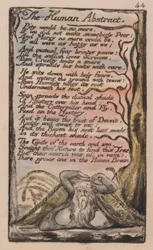 44
The Human Abstract.
Pity would be no more,
If we did not make somebody Poor:
And Mercy no more could be,
If all were as happy as we;
And mutual fear brings peace;
Till the selfish loves increase.
Then Cruelty knits a snare,
And spreads his baits with care.
He sits down with holy fears,
And waters the ground with tears:
Then Humility takes its root
Underneath his foot.
Soon spreads the dismal shade
Of Mystery over his head;
And the Catterpiller and Fly,
Feed on the Mystery.
And it bears the fruit of Deceit,
Ruddy and sweet to eat;
And the Raven his nest has made
In its thickest shade.
The Gods of the earth and sea,
Sought thro' Nature to find this Tree
But their search was all in vain:
There grows one in the Human Brain